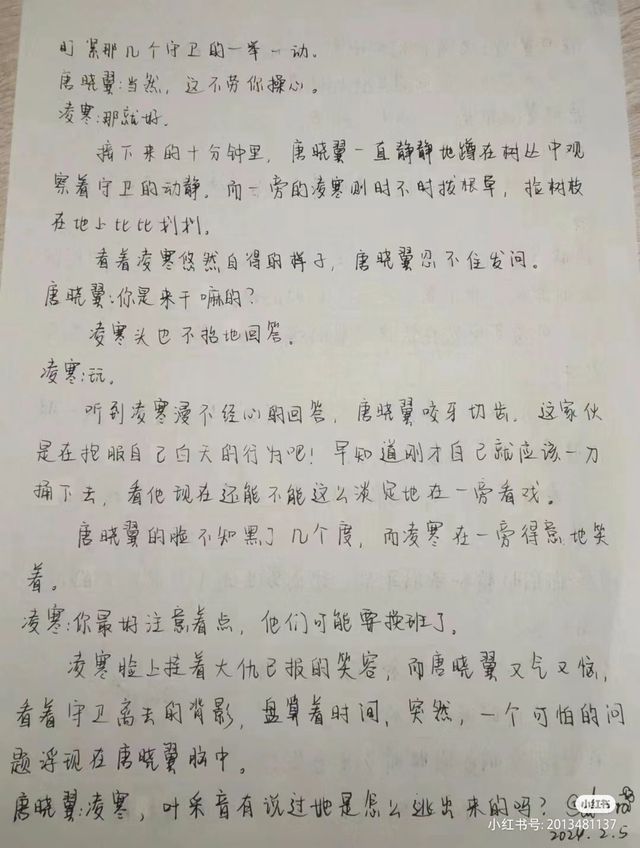 盯紧那几个守卫的一举一动。
唐晓翼:当然，这不劳你操心。
凌寒:那就好。
接下来的十分钟里，唐晓翼一直静静地蹲在树丛中观
察着守卫的动静，而一旁的凌寒则时不时拔根草，捡树枝
在地上比比划划。
看着凌寒悠然自得的样子，唐晓翼忍不住发问。
唐晓翼:你是来干嘛的？
凌寒头也不抬地回答。
凌寒:玩。
听到凌寒漫不经心的回答，唐晓翼咬牙切齿。这家伙
是在报服自己白天的行为吧！早知道刚才自己就应该一刀
捅下去，看他现在还能不能这么淡定地在一旁看戏。
唐晓翼的脸不知黑了几个度，而凌寒在一旁得意地笑
着。
凌寒:你最好注意着点，他们可能要换班了。
凌寒脸上挂着大仇已报的笑容，而唐晓翼又气又恼，
看着守卫离去的背影，盘算着时间，突然，一个可怕的问
题浮现在唐晓翼脑中。
唐晓翼:凌寒，叶采音有说过她是怎么逃出来的吗？
小红书
小红书号: 2013481137
2024.2.5